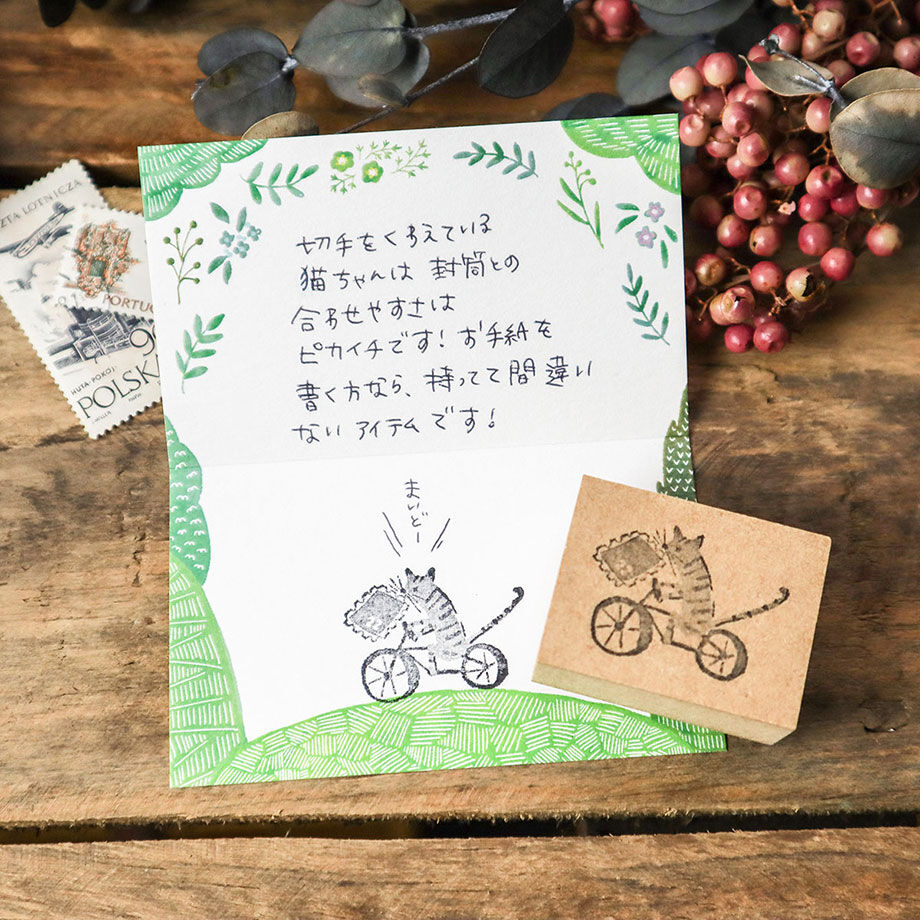 切手をくわえている
猫ちゃんは 封筒との
合わせやすさは
ピカイチです！お手紙を
書く方なら、持ってて間違い
ない アイテムです！
まいどー
ZTA LOTNICZA
PORTUG
90
HUTA POKÓJ
POLSK